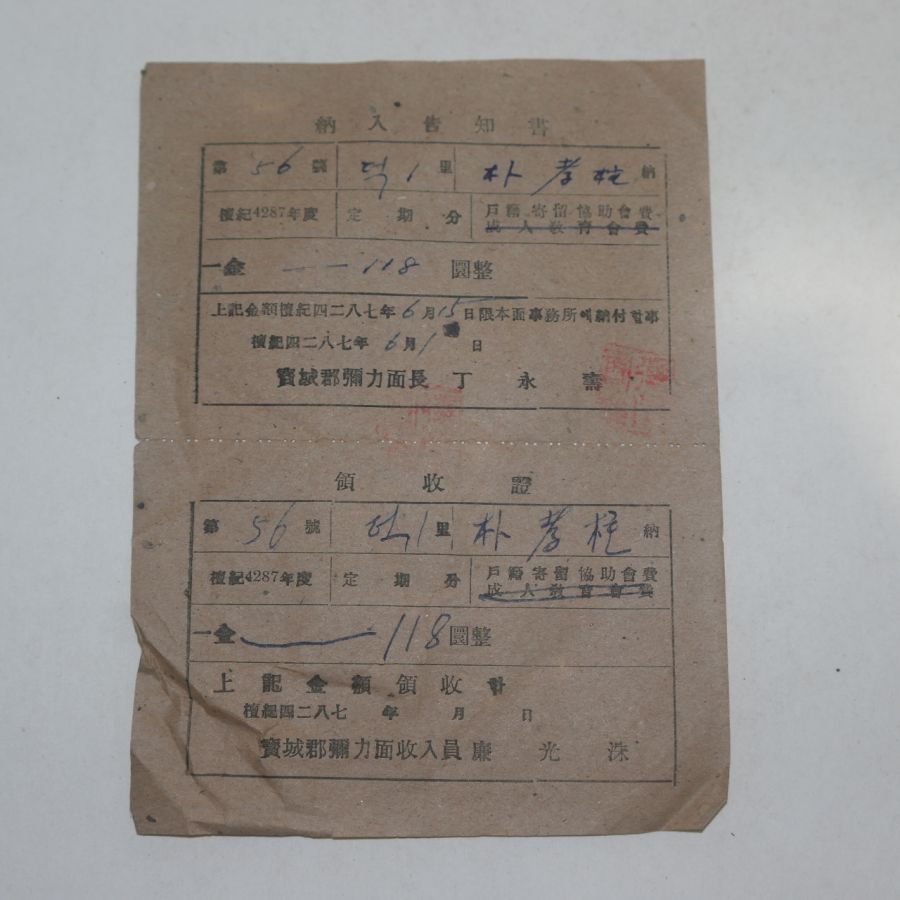 納入告知書
第 56 號 덕 1 里 朴孝柱 納
檀紀4287年度 定期分 戶籍寄留協助會費
成人敎育會費
一金 118 圜整
上記金額檀紀四二八七年 6 月 15 日限本面事務所에納付할事
檀紀四二八七年 6 月 1 日
寶城郡彌力面長 丁永壽
領收證
第 56 號 덕 1 里 朴孝柱 納
檀紀4287年度 定期分 戶籍寄留協助會費
成人敎育會費
一金 118 圜整
上記金額領收함
檀紀四二八七 年 月 日
寶城郡彌力面收入員 廉光洙